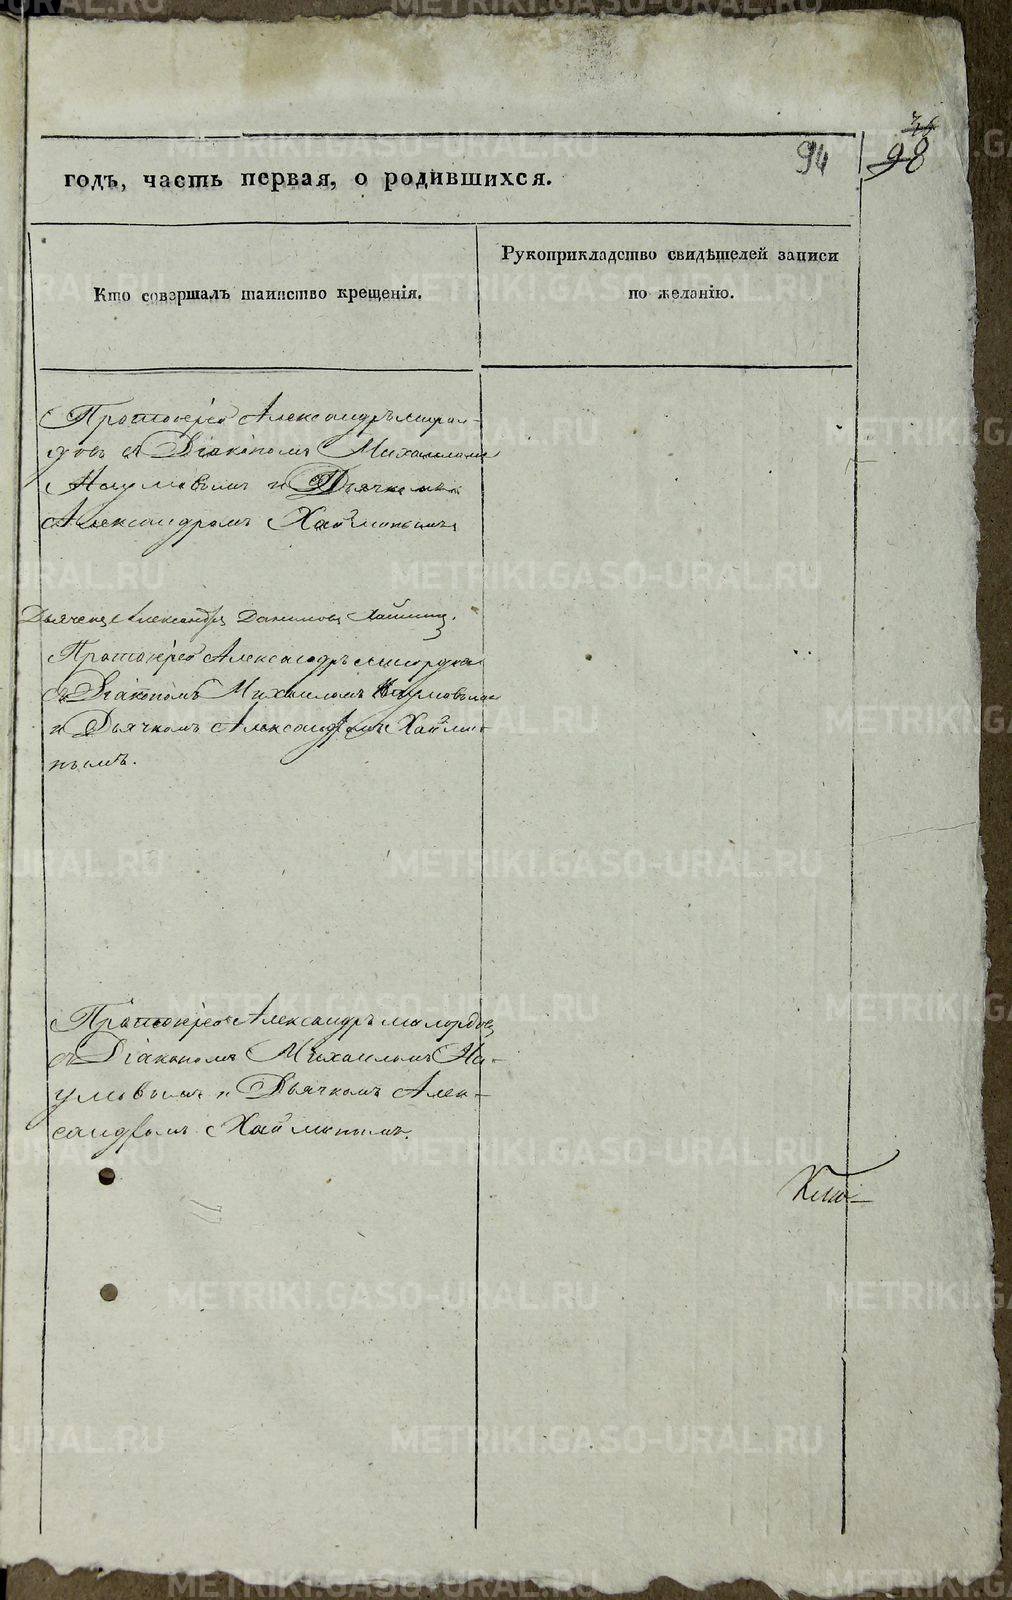 94
98
годъ, часть первая, о родившихся.
Кто совершалъ таинство крещенія.
Рукоприкладство свидѣтелей записи
по желанію.
Протоіерей Александръ
съ Діакономъ Михаиломъ
Наумовымъ и Дьячкомъ
Александромъ
Дьячекъ Александръ
Протоіерей Александръ
съ Діакономъ Михаиломъ Наумовымъ
и Дьячкомъ Александромъ
нымъ.
Протоіерей Александръ
съ Діакономъ Михаиломъ На-
умовымъ и Дьячкомъ Алек-
сандромъ
METRIKI.GASO-URAL.RU